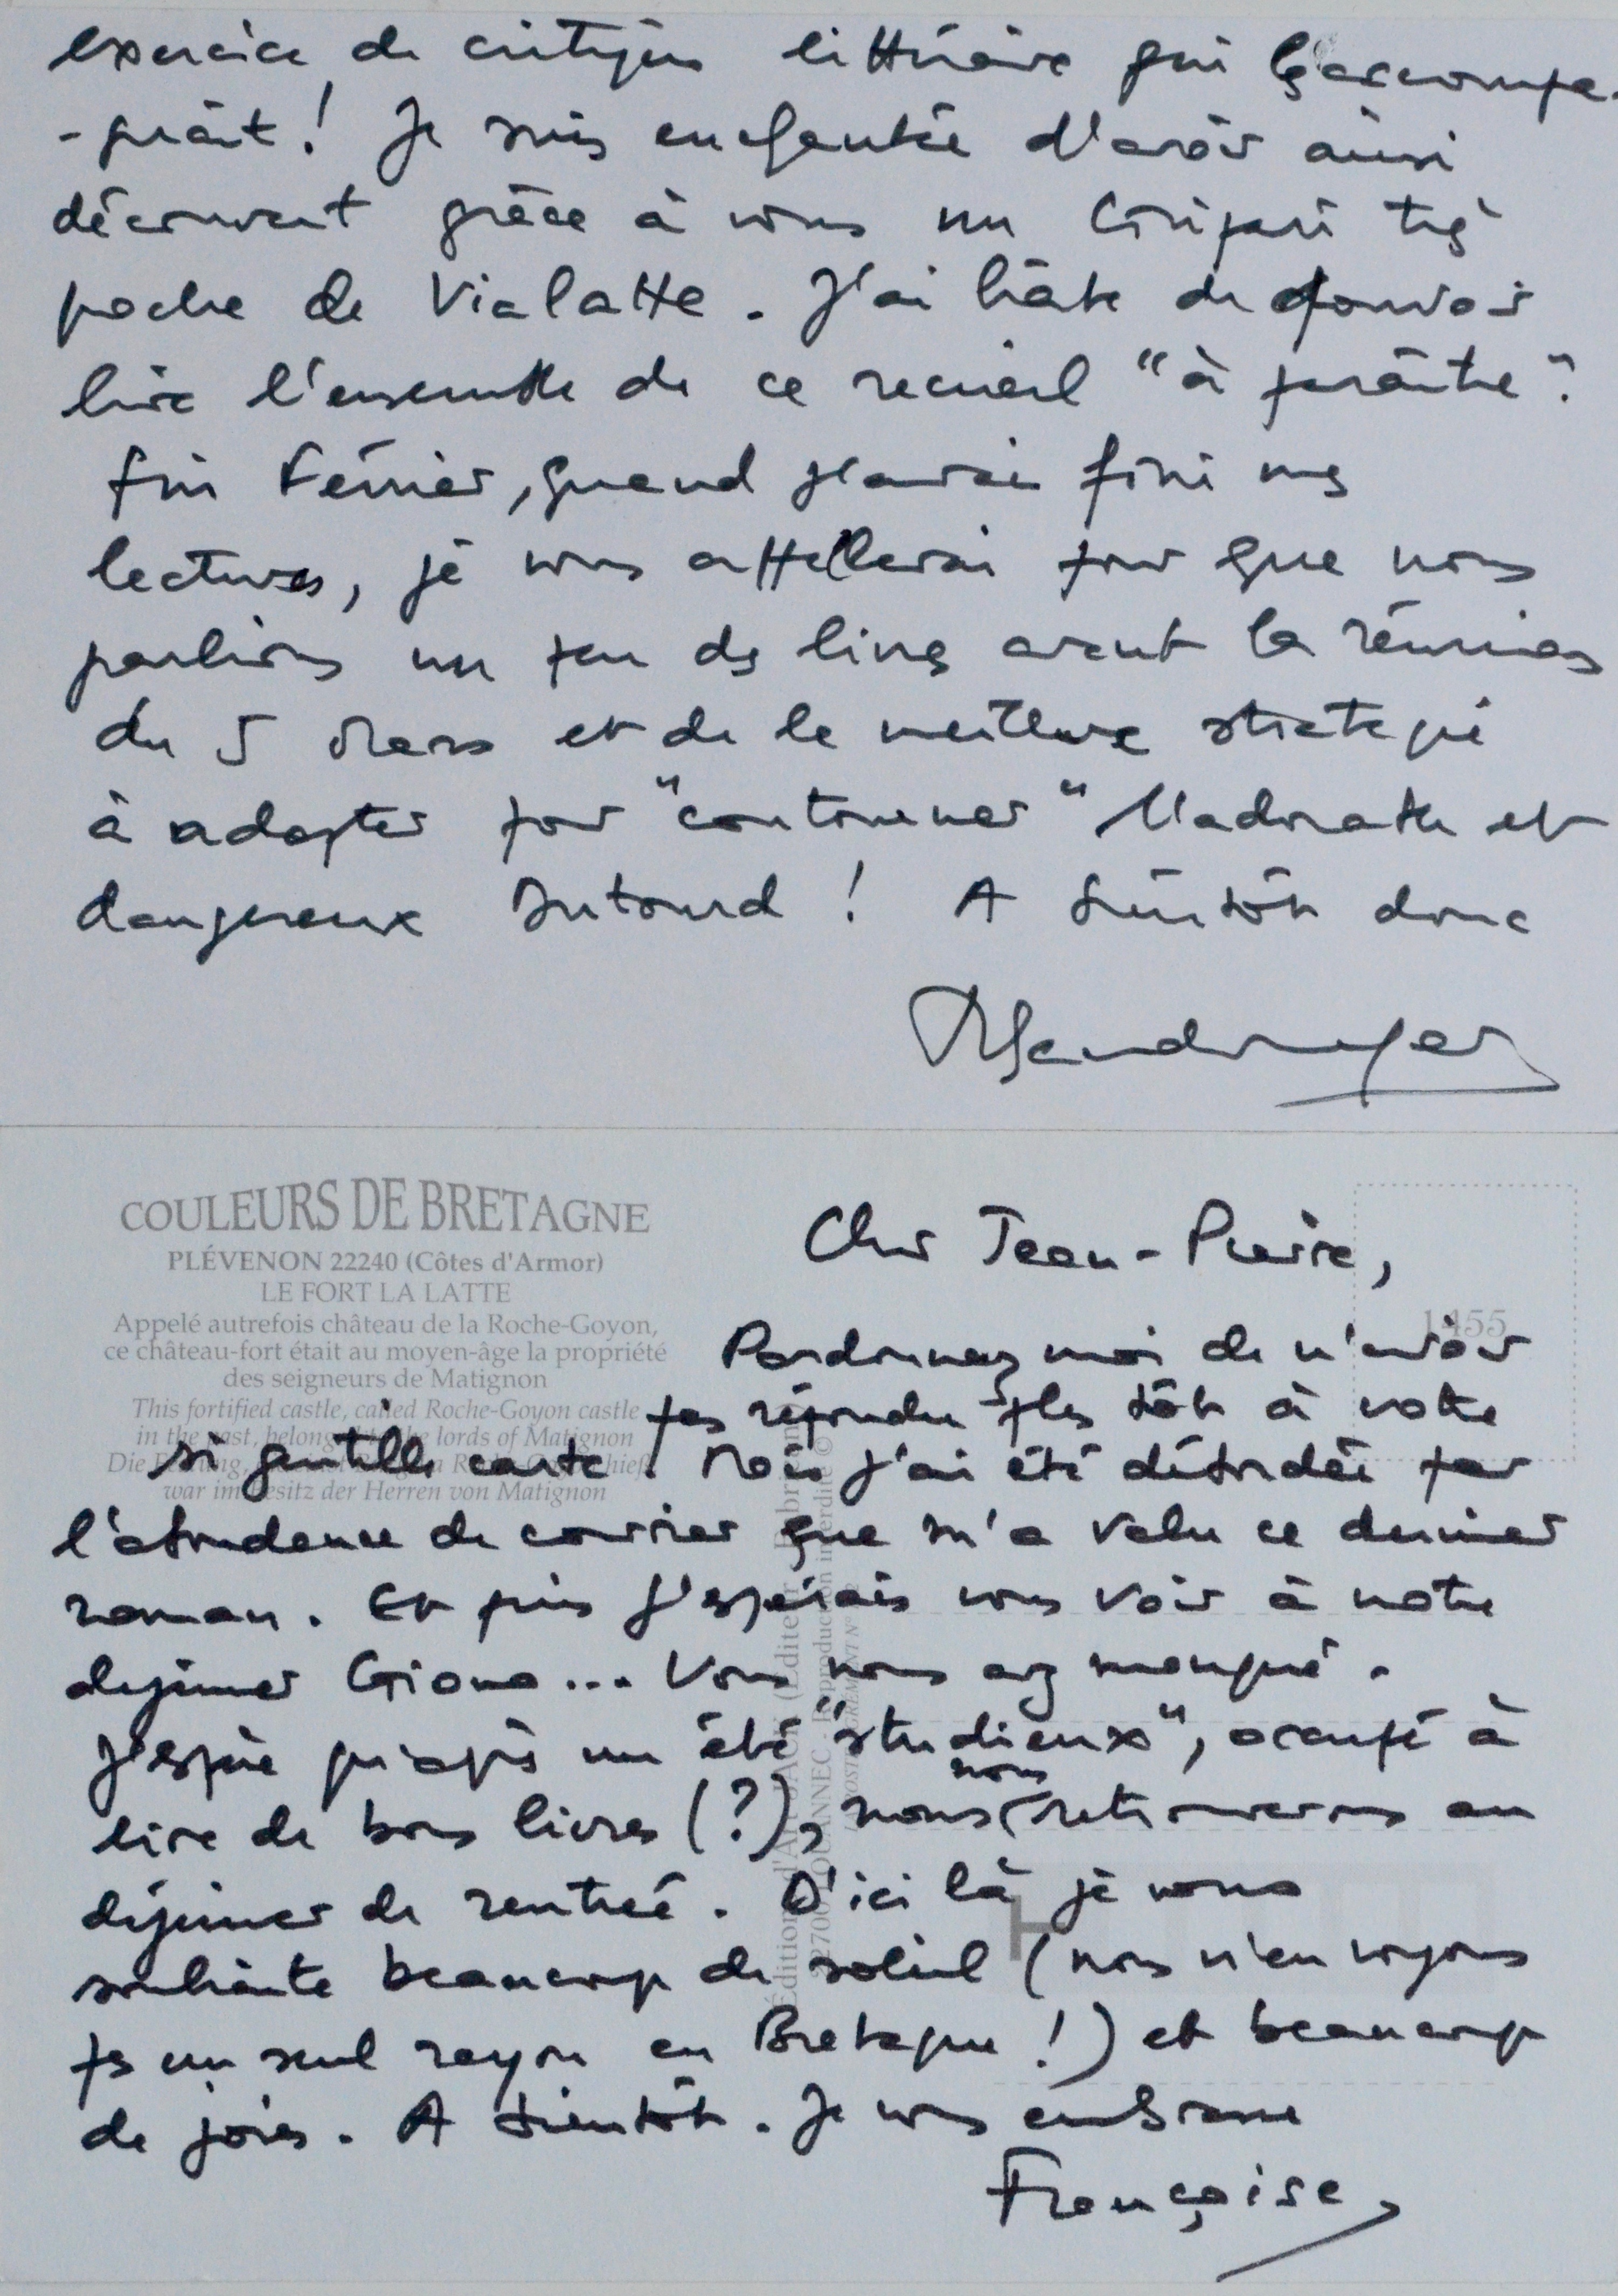 exercice de critique littéraire qui l'accompa-
-gnait ! Je suis enchantée d'avoir ainsi
découvert grâce à vous un cousin très
proche de Vialatte. J'ai hâte de pouvoir
lire l'ensemble de ce recueil "à paraître".
fin Février, quand j'aurai fini mes
lectures, je vous appellerai pour que nous
parlions un peu des livres avant la réunion
du 5 Mars et de la meilleure stratégie
à adopter pour "contourner" l'adorable et
dangereux Dutourd ! A bientôt donc
COULEURS DE BRETAGNE
PLÉVENON 22240 (Côtes d'Armor)
LE FORT LA LATTE
Appelé autrefois château de la Roche-Goyon,
ce château-fort était au moyen-âge la propriété
des seigneurs de Matignon
This fortified castle, called Roche-Goyon castle
in the past, belonged to the lords of Matignon
war im Besitz der Herren von Matignon
1455
Cher Jean-Pierre,
Pardonnez moi de n'avoir
pas répondu plus tôt à votre
si gentille carte. Mais j'ai été débordée par
l'abondance de courrier que m'a valu ce dernier
roman. Et puis j'espérais vous voir à notre
déjeuner Giono... Vous nous avez manqué.
J'espère qu'après un été "studieux", occupé à
lire de bons livres (?), nous nous retrouverons au
déjeuner de rentrée. D'ici là je vous
souhaite beaucoup de soleil (nous n'en voyons
pas un seul rayon en Bretagne !) et beaucoup
de joies. A bientôt. Je vous embrasse
Françoise